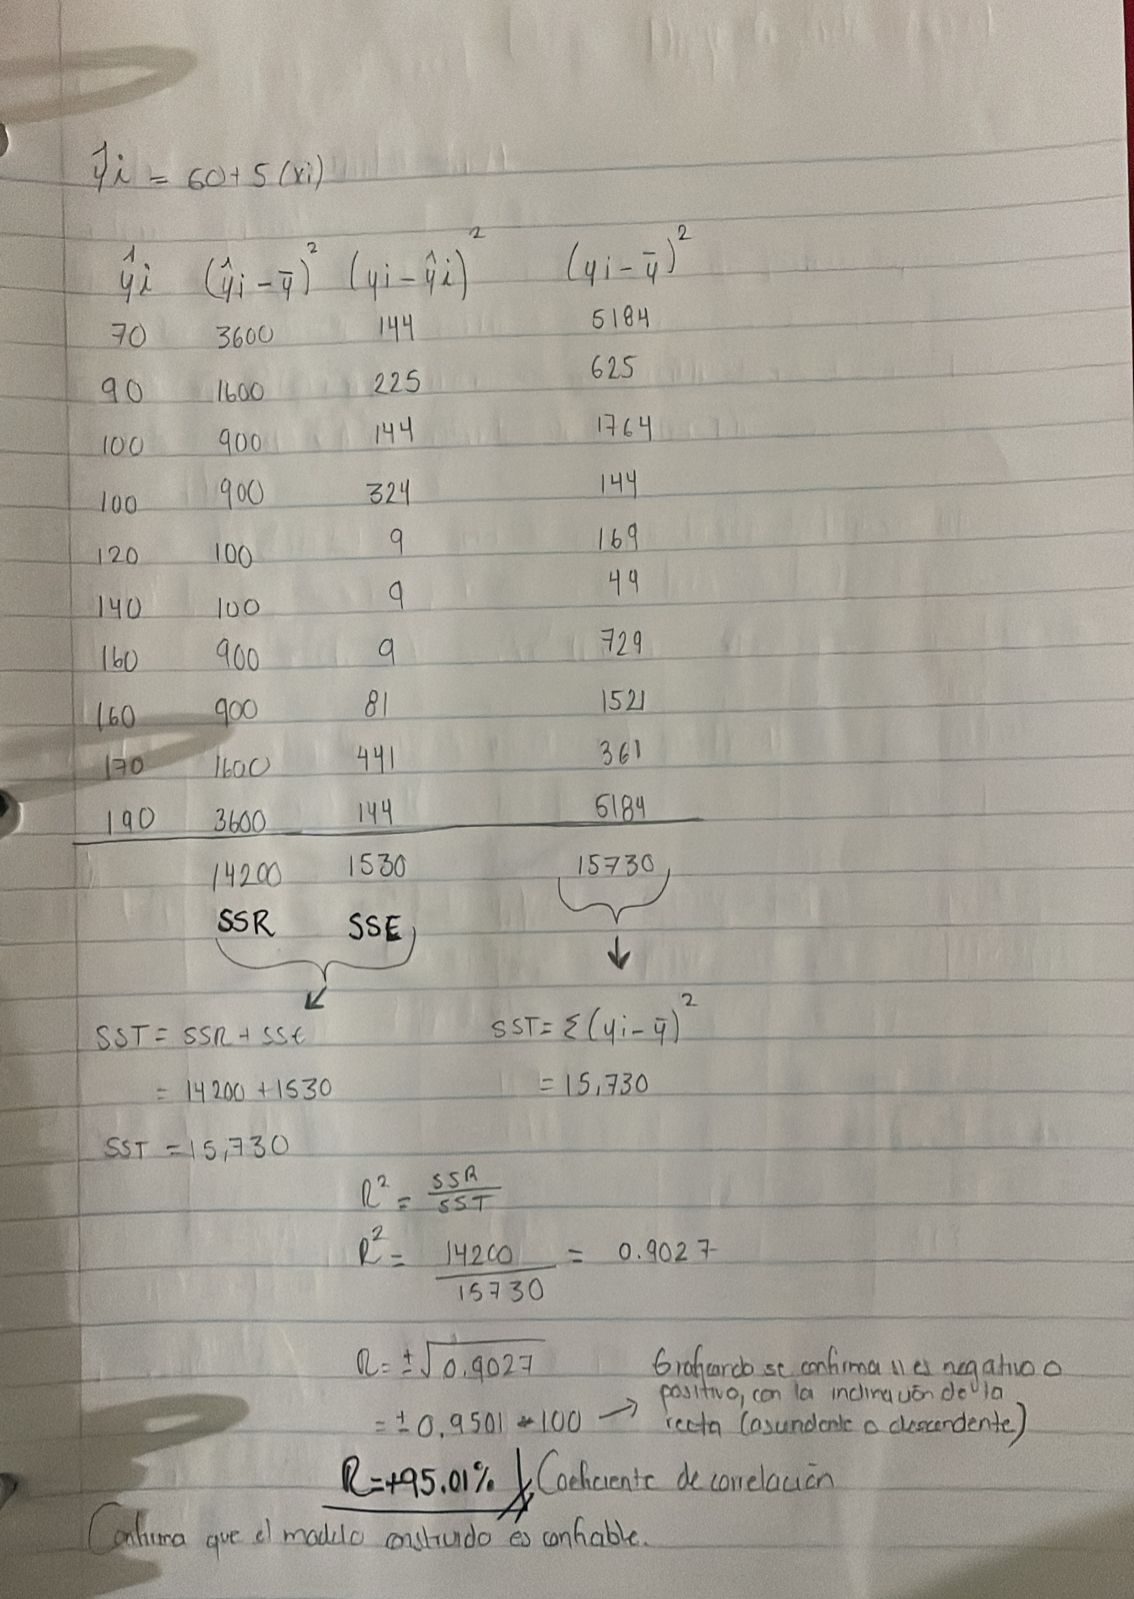 ŷi = 60+5(xi)
ŷi (ŷi-ȳ)² (yi-ŷi)² (yi-ȳ)²
70 3600 144 5184
90 1600 225 625
100 900 144 1764
100 900 324 144
120 100 9 169
140 100 9 49
160 900 9 729
160 900 81 1521
170 1600 441 361
190 3600 144 5184
14200 1530 15730
SSR SSE
SST = SSR + SSE SST = Σ(yi-ȳ)²
= 14200 + 1530 = 15,730
SST = 15,730
R² = SSR/SST
R² = 14200/15730 = 0.9027
R = ±√0.9027 Graficando se confirma si es negativo o
positivo, con la inclinación de la
= ±0.9501 * 100 → recta (ascendente o descendente)
R=+95.01% Coeficiente de correlación
Confirma que el modelo construido es confiable.